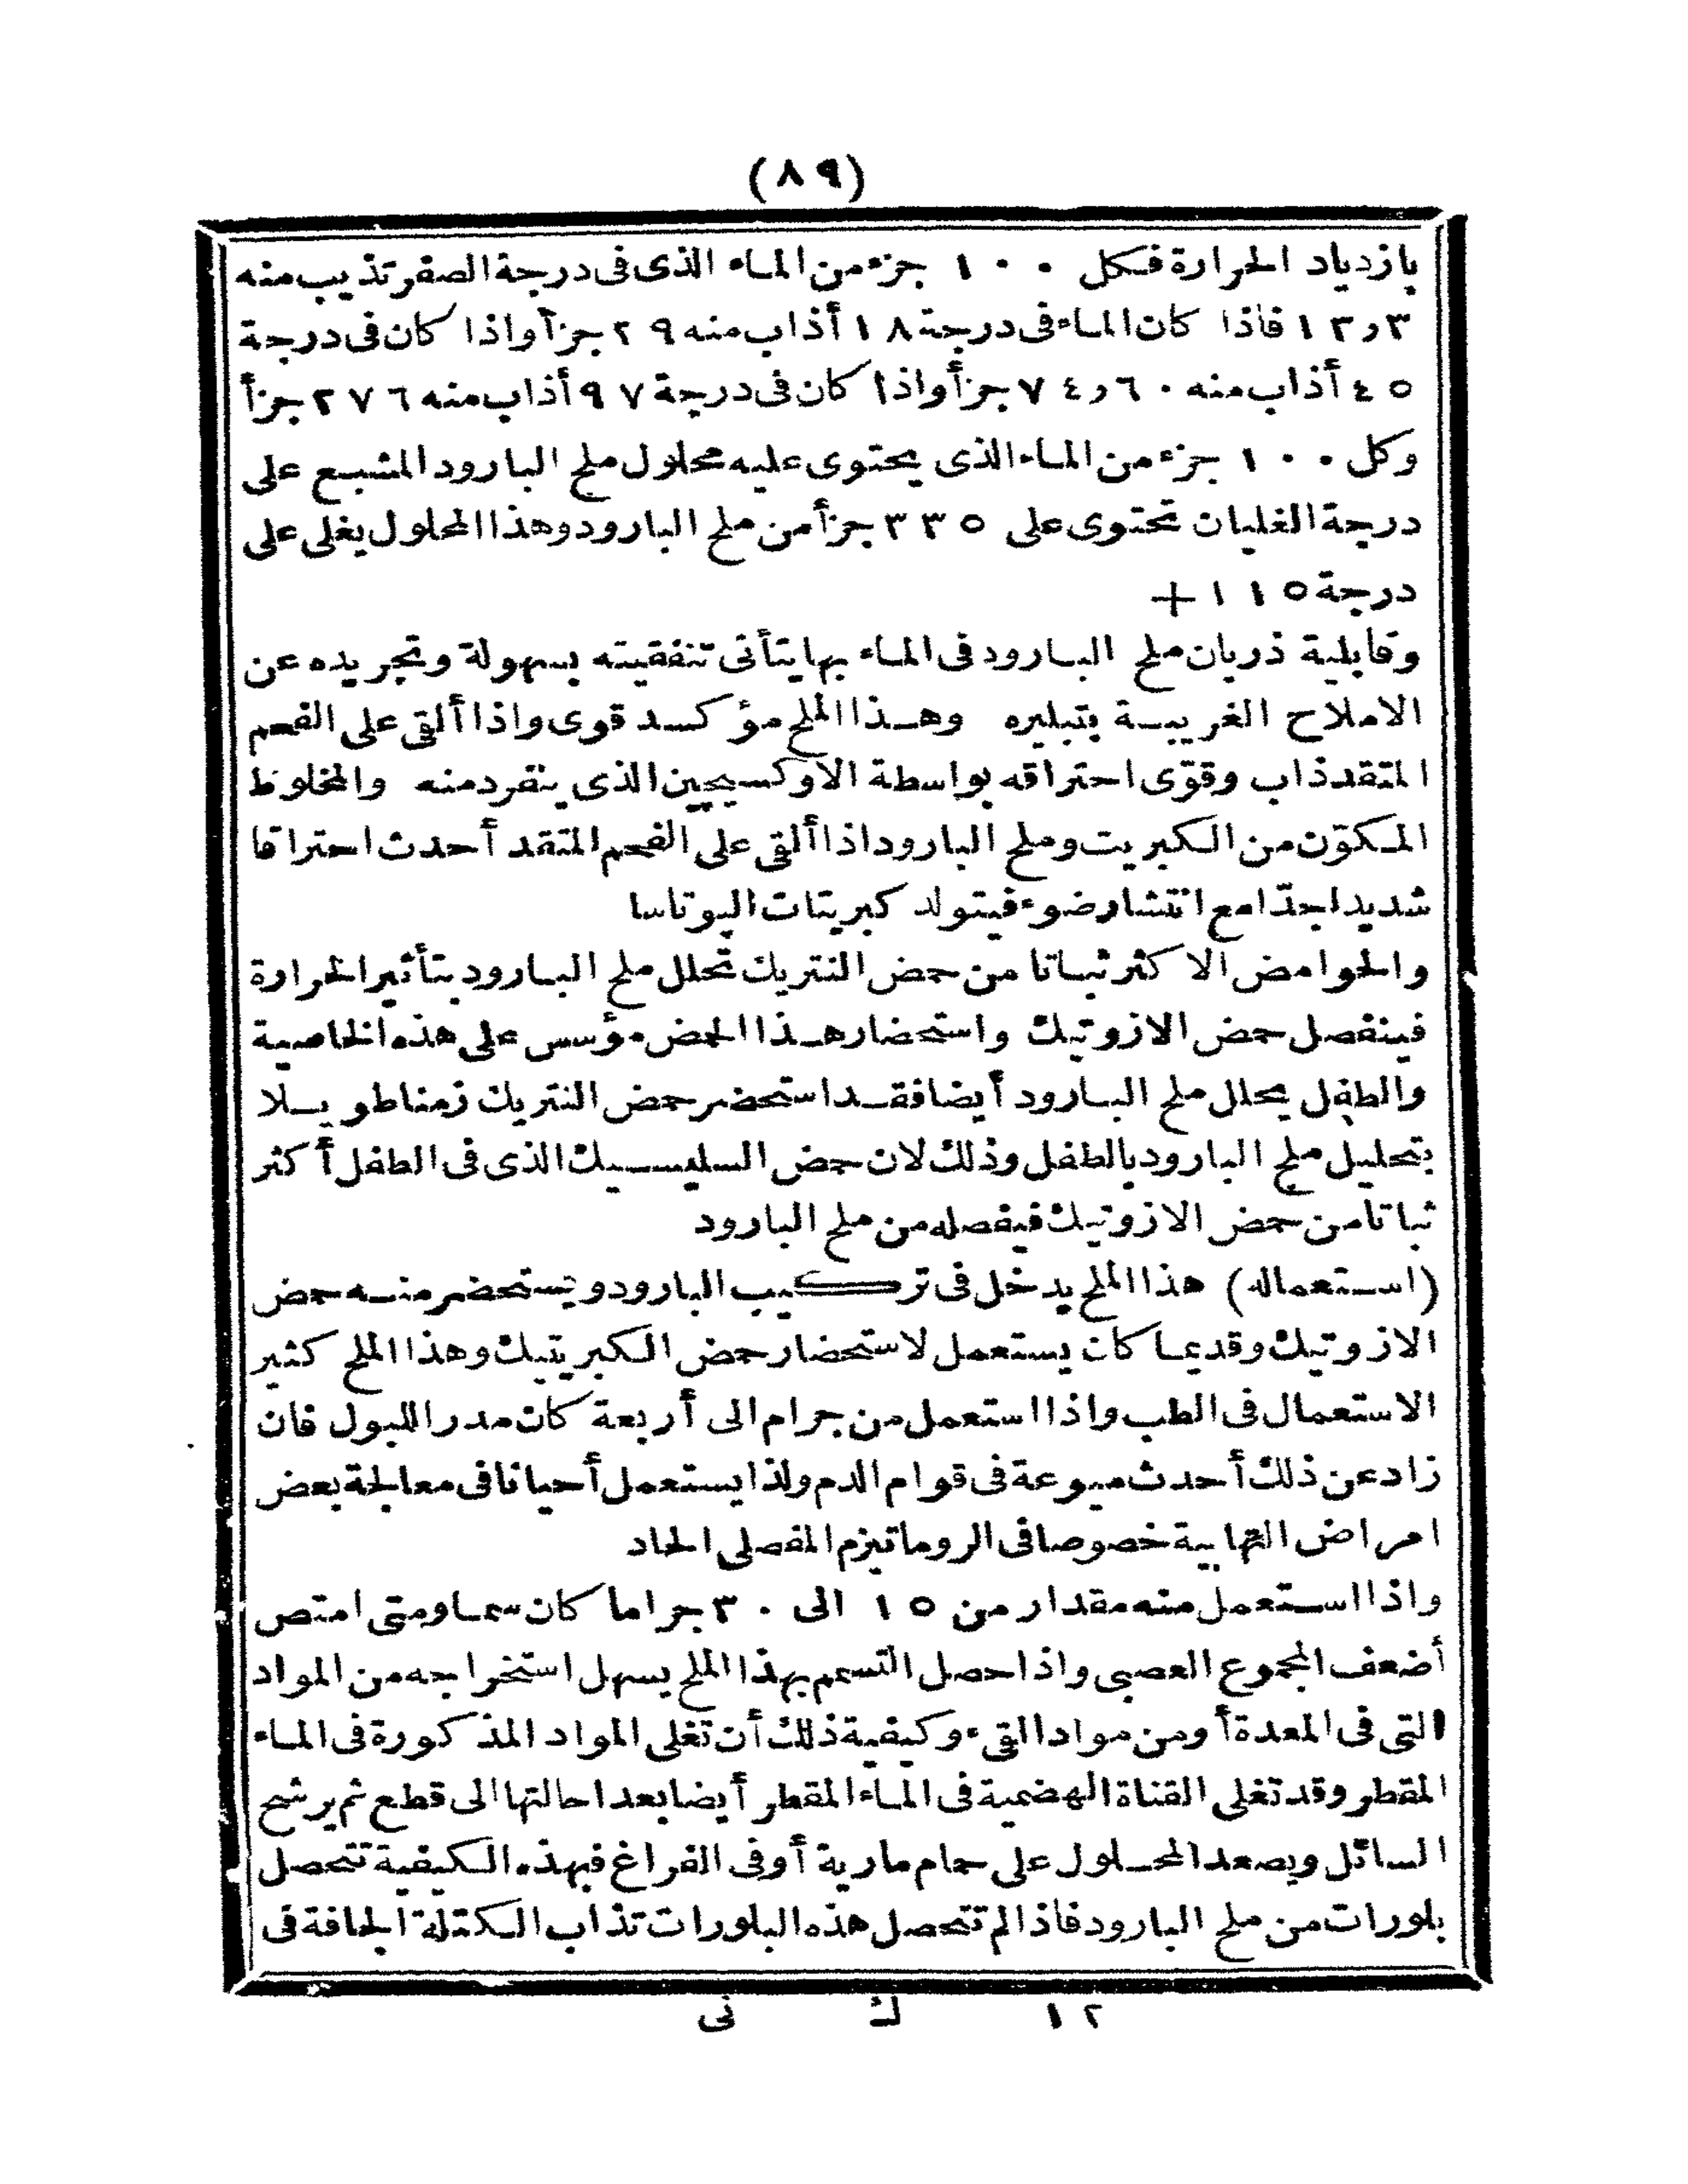 (٨٩)
بازدياد الحرارة فكل ١٠٠ جزء من الماء الذى فى درجة الصفر تذيب منه
١٣٫٣ فاذا كان الماء فى درجة ١٨ أذاب منه ٢٩ جزأ واذا كان فى درجة
٤٥ أذاب منه ٧٤٫٦٠ جزأ واذا كان فى درجة ٩٧ أذاب منه ٢٧٦ جزأ
وكل ١٠٠ جزء من الماء الذى يحتوى عليه محلول ملح البارود المشبع على
درجة الغليان تحتوى على ٣٣٥ جزأ من ملح البارود وهذا المحلول يغلى على
درجة ١١٥ +
وقابلية ذربان ملح البارود فى الماء بها يتأتى تنقيته بسهولة وتجريده عن
الاملاح الغريبة بتبليره وهذا الملح مؤكسد قوى واذا ألقى على الفحم
المتقد ذاب وقوّى احتراقه بواسطة الاوكسيجين الذى ينفرد منه والمخلوط
المكوّن من الكبريت وملح البارود اذا ألقى على الفحم المتقد أحدث احتراقا
شديدا جدّا مع انتشار ضوء فيتولد كبريتات البوتاسا
والحوامض الاكثر ثباتا من حمض النتريك تحلل ملح البارود بتأثير الحرارة
فينفصل حمض الازوتيك واستحضار هذا الحمض مؤسس على هذه الخاصية
والطفل يحلل ملح البارود أيضا فقد استحضر حمض النتريك زمنا طويلا
بتحليل ملح البارود بالطفل وذلك لان حمض السليسيك الذى فى الطفل أكثر
ثباتا من حمض الازوتيك فيفصله من ملح البارود
(استعماله) هذا الملح يدخل فى تركيب البارود ويستحضر منه حمض
الازوتيك وقديما كان يستعمل لاستحضار حمض الكبريتيك وهذا الملح كثير
الاستعمال فى الطب واذا استعمل من جرام الى أربعة كان مدرا للبول فان
زاد عن ذلك أحدث ميوعة فى قوام الدم ولذا يستعمل أحيانا فى معالجة بعض
امراض التهابية خصوصا فى الروماتيزم المفصلى الحاد
واذا استعمل منه مقدار من ١٥ الى ٣٠ جراما كان سما ومتى امتص
أضعف المجموع العصبى واذا حصل التسمم بهذا الملح يسهل استخراجه من المواد
التى فى المعدة أو من مواد القىء وكيفية ذلك أن تغلى المواد المذكورة فى الماء
المقطر وقد تغلى القناة الهضمية فى الماء المقطر أيضا بعد احالتها الى قطع ثم يرشح
السائل ويصعد المحلول على حمام مارية أو فى الفراغ فبهذه الكيفية تتحصل
بلورات من ملح البارود فاذا لم تتحصل هذه البلورات تذاب الكتلة الجافة فى
١٢ ك نى